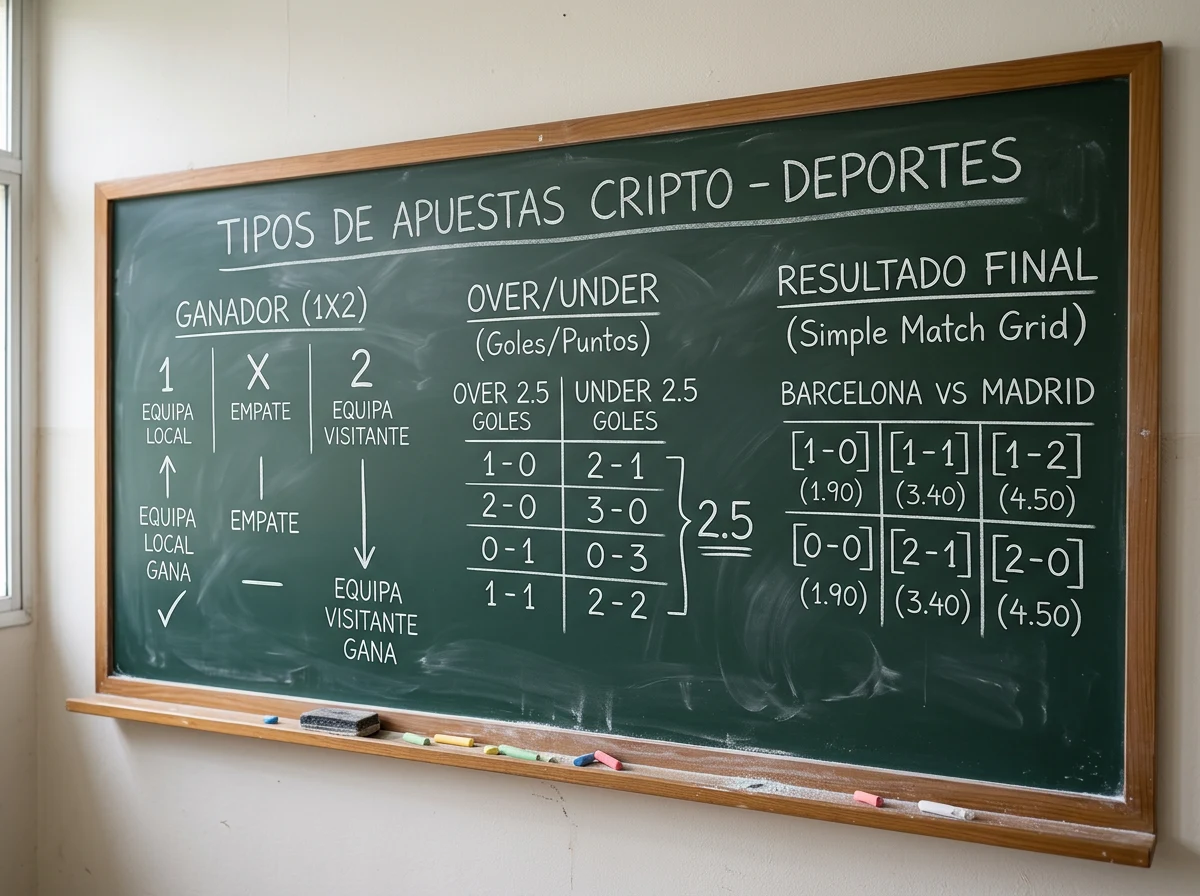 TIPOS DE APUESTAS CRIPTO - DEPORTES
GANADOR (1X2)
1 X 2
EQUIPA LOCAL EMPATE EQUIPA VISITANTE
EQUIPA LOCAL GANA EMPATE EQUIPA VISITANTE GANA
✓ —
OVER/UNDER
(Goles/Puntos)
OVER 2.5 GOLES UNDER 2.5 GOLES
1-0 2-1
2-0 3-0
0-1 0-3
1-1 2-2
2.5
RESULTADO FINAL
(Simple Match Grid)
BARCELONA VS MADRID
[1-0] [1-1] [1-2]
(1.90) (3.40) (4.50)
[0-0] [2-1] [2-0]
(1.90) (3.40) (4.50)